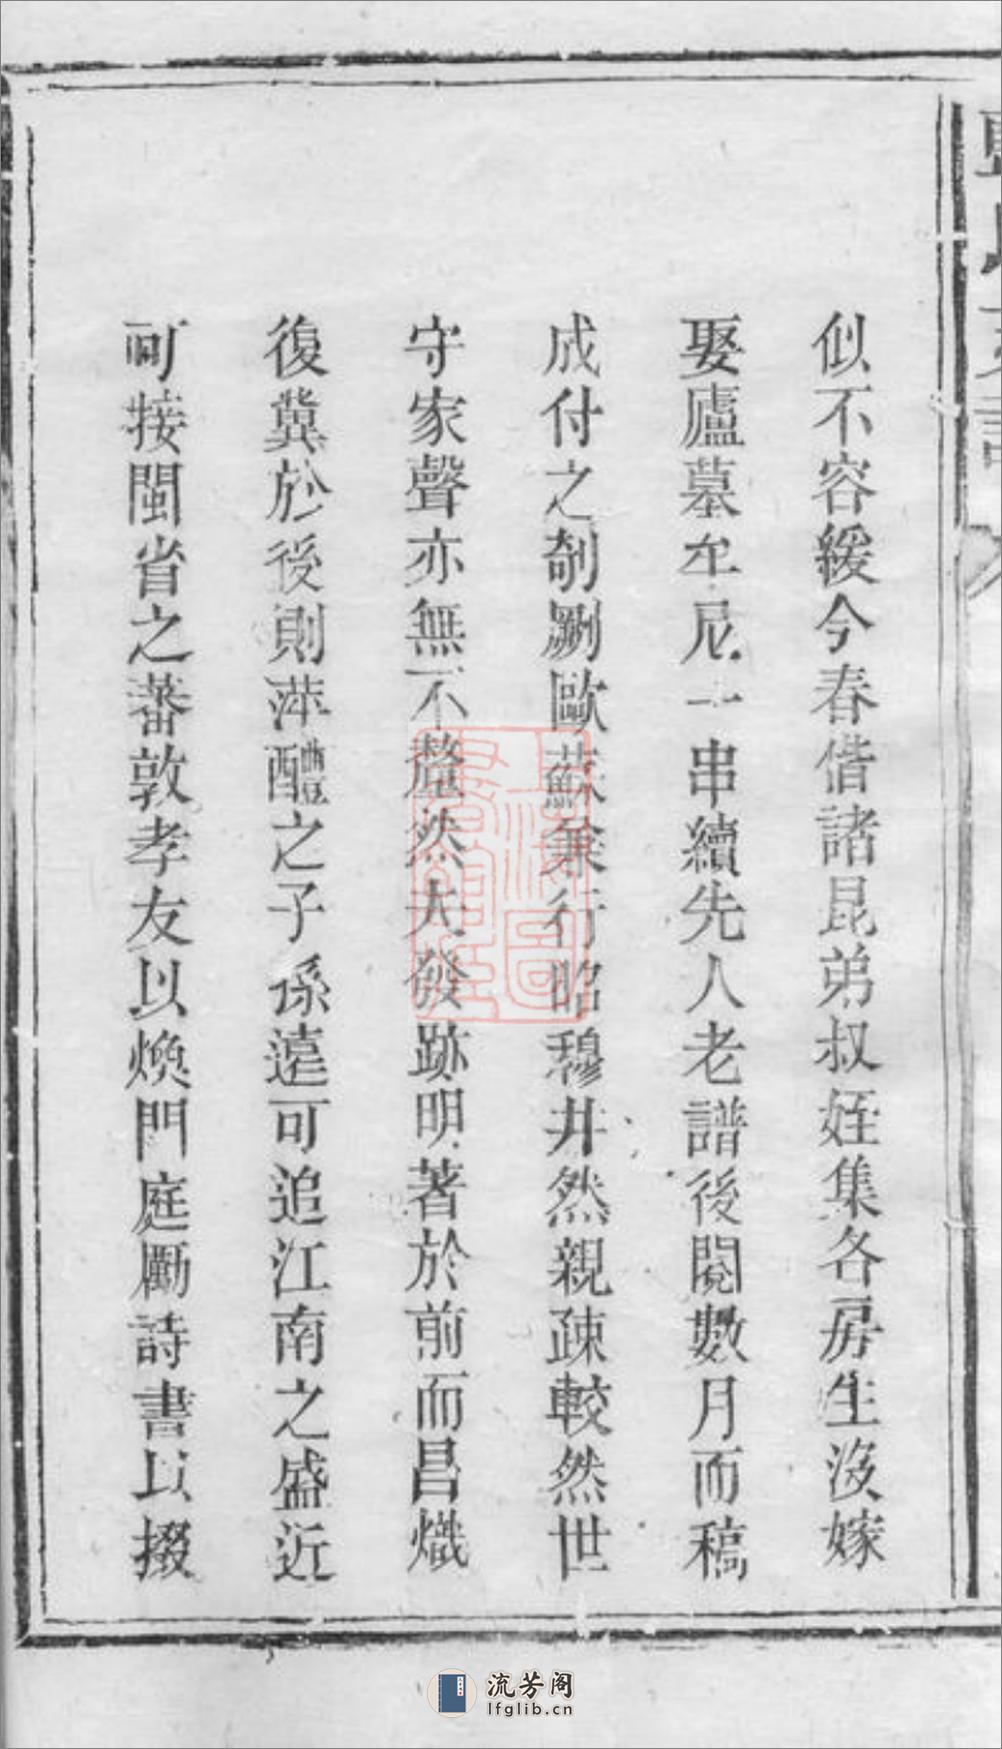 似不容緩今春偕諸昆弟叔姪集各房生沒嫁
娶廬墓牟尼一串續先人老譜後閱數月而稿
成付之剞劂歐蘇兼行昭穆井然親疎較然世
守家聲亦無不釐然大發跡明著於前而昌熾
復冀於後則萍醴之子係遠可追江南之盛近
可接閩省之蕃敦孝友以煥門庭勵詩書以掇
上海圖
書館藏
流芳阁
lfglib.cn